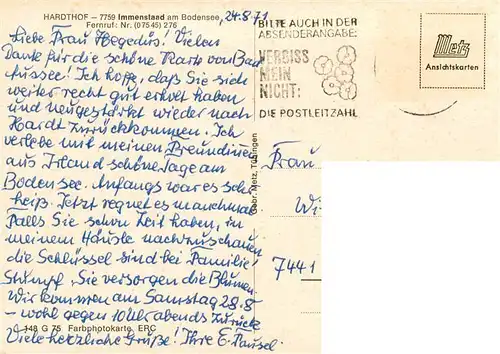 HARDTHOF – 7759 Immenstaad am Bodensee,
Fernruf: Nr. (07545) 276
24.8.71
Liebe Frau Hegedüs! Vielen
Dank für die schöne Karte von Bad
Aussee! Ich hoffe, daß Sie sich
weiter recht gut erholt haben
und neugestärkt wieder nach
Hardt zurückkommen. Ich
verlebe mit meinen Freundinnen
aus Irland schöne Tage am
Bodensee. Anfangs war es sehr
heiß. Jetzt regnet es manchmal.
Falls Sie schon Zeit haben, in
meinem Häusle nachzuschauen
die Schlüssel sind bei Familie
Stumpf, Sie versorgen die Blumen.
Wir kommen am Samstag 28.8-
– wohl gegen 10 Uhr abends zurück
Viele herzliche Grüße! Ihre E.
148 G 75 Farbphotokarte, ERC
Gebr. Metz, Tübingen
BITTE AUCH IN DER
ABSENDERANGABE:
MEIN
NICHT:
DIE POSTLEITZAHL
Metz
Ansichtskarten
Frau
Wi
7441